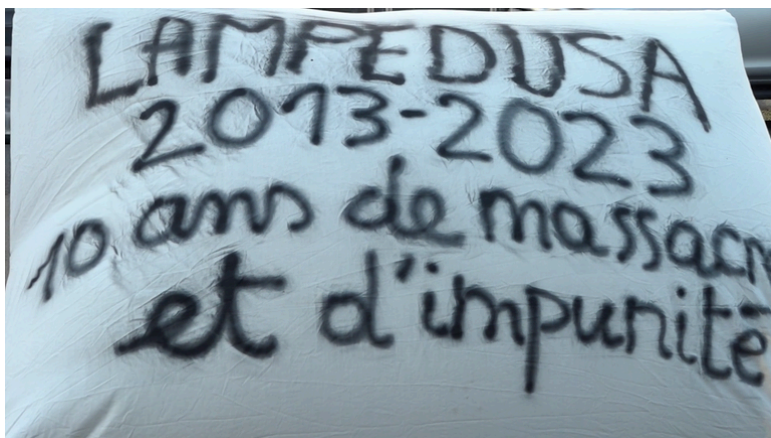 LAMPEDUSA
2013-2023
10 ans de massacr
et d'impunité